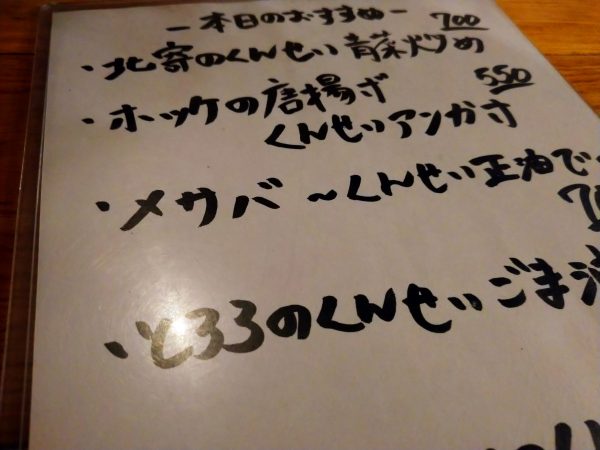 ー本日のおすすめー
700
・北寄のくんせい 青菜炒め
550
・ホッケの唐揚げ
くんせいアンかけ
・メサバ ～くんせい正油で
・とろろのくんせいごま油